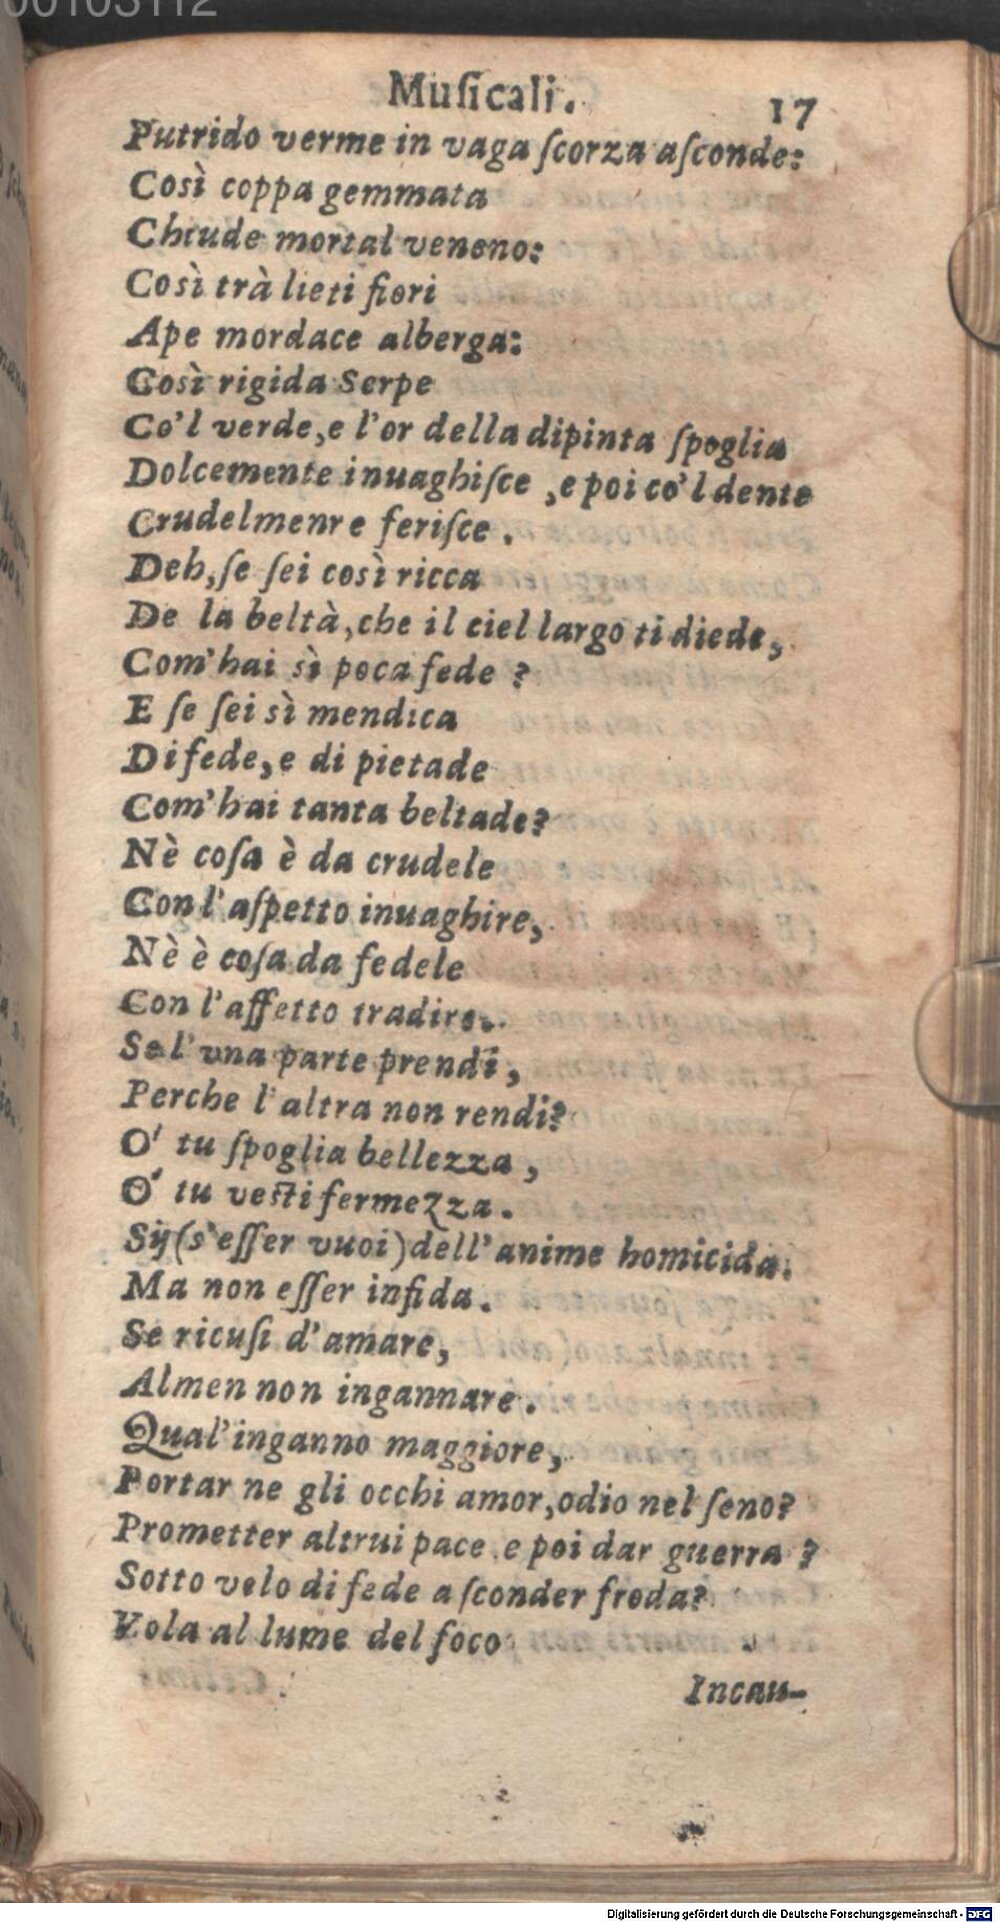 00103112
Muſicali.
17
Putrido verme in vaga ſcorza aſconde:
Così coppa gemmata
Chiude mortal veneno:
Così trà lieti fiori
Ape mordace alberga:
Così rigida Serpe
Co'l verde, e l'or della dipinta ſpoglia
Dolcemente inuaghiſce, e poi co'l dente
Crudelmenre feriſce.
Deh, ſe ſei così ricca
De la beltà, che il ciel largo ti diede,
Com'hai sì poca fede?
E ſe ſei sì mendica
Di fede, e di pietade
Com'hai tanta beltade?
Nè coſa è da crudele
Con l'aſpetto inuaghire,
Nè è coſa da fedele
Con l'affetto tradire.
Se l'vna parte prendi,
Perche l'altra non rendi?
O' tu ſpoglia bellezza,
O' tu veſti fermezza.
Sij (s'eſſer vuoi) dell'anime homicida.
Ma non eſſer infida.
Se ricuſi d'amare,
Almen non ingannare.
Qual'inganno maggiore,
Portar ne gli occhi amor, odio nel ſeno?
Prometter altrui pace, e poi dar guerra?
Sotto velo di fede aſconder froda?
Vola al lume del foco
Incau-
Digitalisierung gefördert durch die Deutsche Forschungsgemeinschaft - DFG